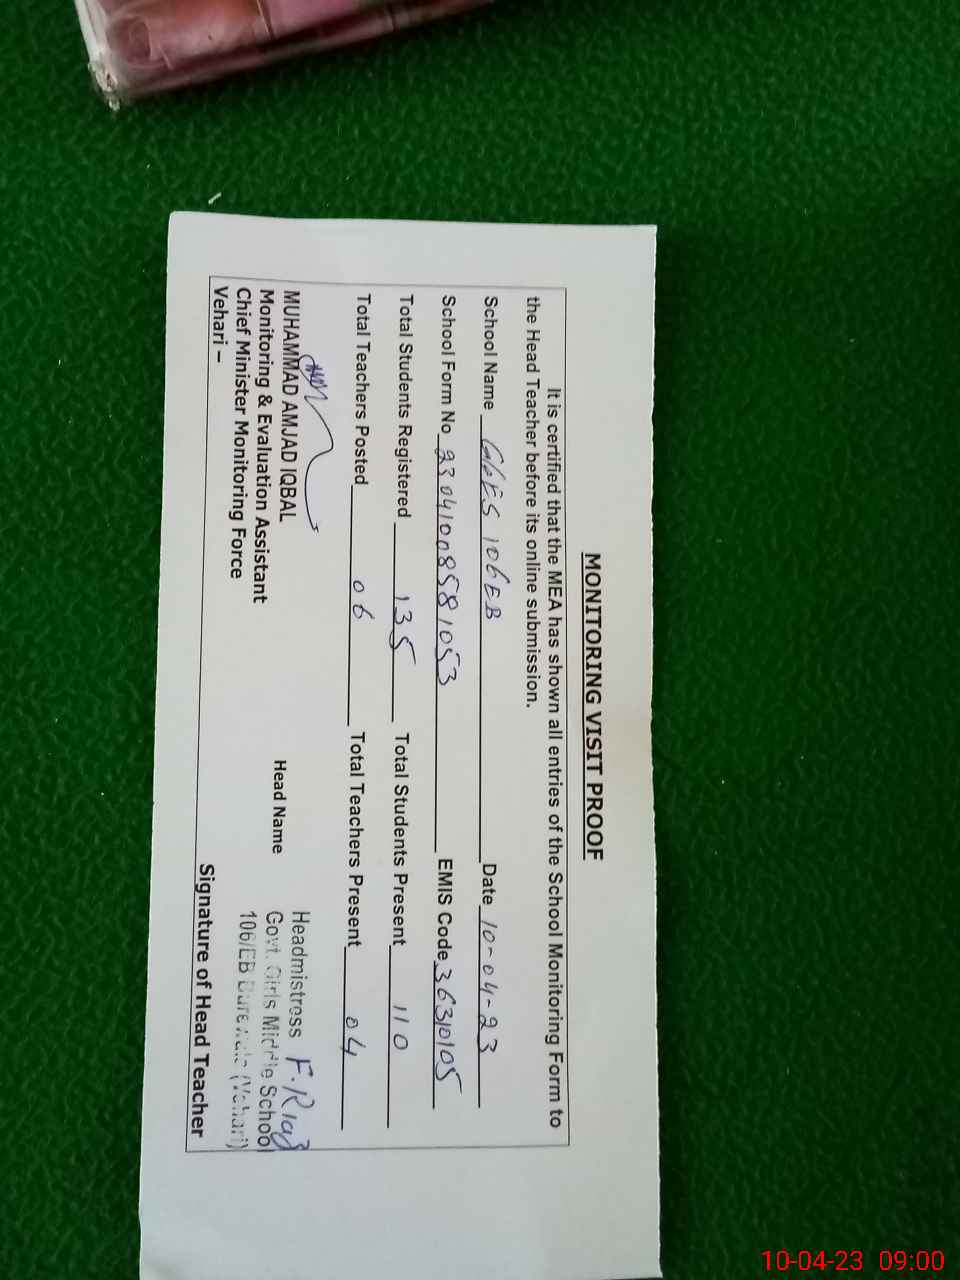 MONITORING VISIT PROOF
It is certified that the MEA has shown all entries of the School Monitoring Form to
the Head Teacher before its online submission.
School Name GGES 106EB Date 10-04-23
School Form No 23041008581053 EMIS Code 36310105
Total Students Registered 135 Total Students Present 110
Total Teachers Posted 06 Total Teachers Present 04
MUHAMMAD AMJAD IQBAL
Monitoring & Evaluation Assistant
Chief Minister Monitoring Force
Vehari –
Head Name
F. Riaz
Headmistress
Govt. Girls Middle School
106/EB Burewala (Vehari)
Signature of Head Teacher
10-04-23 09:00